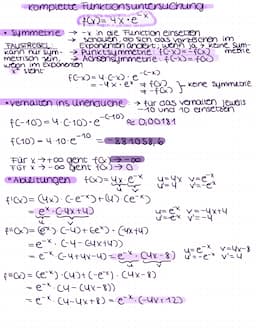 komplette Funktionsuntersuchung
f(x)=4x·e^-x
• Symmetrie → -x in die Funktion einsetzen
→ schauen, ob sich das Vorzeichen im
Exponenten ändert, wenn ja → keine Symmetrie
→ Punktsymmetrie f(-x)=-f(x)
→ Achsensymmetrie f(-x)=f(x)
kann nur sym-
metrisch sein,
wenn im Exponenten
x² steht
f(-x)=4(-x)·e^-(-x)
=-4x·e^x ≠ f(x)
≠ -f(x) } keine Symmetrie
• Verhalten ins unendliche → für das Verhalten jeweils
-10 und 10 einsetzen
f(-10)=4·(-10)·e^-(-10) ≈ 0,00181
f(10)=4·10·e^-10 = -881058,6
Für x→+∞ geht f(x)→-∞
Für x→-∞ geht f(x)→0
• Ableitungen f(x)=4x·e^-x u=4x v=e^-x
f'(x)=(4x)·(-e^-x)+(4)·(e^-x)
= e^-x·(-4x+4)
f''(x)=(e^-x)·(-4)+(-e^-x)·(-4x+4)
= e^-x·(-4-(-4x+4))
= e^-x·(-4+4x-4)=e^-x·(4x-8)
f'''(x)=(e^-x)·(4)+(-e^-x)·(4x-8)
= e^-x·(4-(4x-8))
= e^-x·(4-4x+8)=e^-x·(-4x+12)